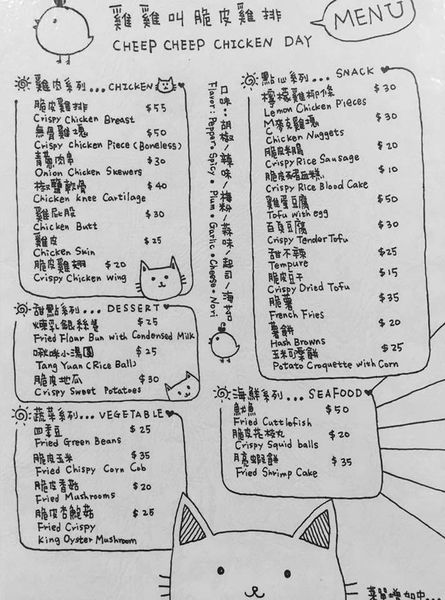 雞雞叫脆皮雞排
MENU
CHEEP CHEEP CHICKEN DAY
雞皮系列... CHICKEN
脆皮雞排 $55
Crispy Chicken Breast
無骨雞塊 $50
Crispy Chicken Piece (Boneless)
蔥肉串 $30
Onion Chicken Skewers
椒鹽軟骨 $40
Chicken knee Cartilage
雞屁股 $30
Chicken Butt
雞皮 $25
Chicken Swin
脆皮雞翅 $20
Crispy Chicken wing
口味:胡椒/辣味/梅粉/蒜味/起司/海苔
Flavor: Pepper • Spicy • Plum • Garlic • Cheese • Nori
點心系列... SNACK
檸檬雞柳條 $30
Lemon Chicken Pieces
M麥克雞塊 $30
Chicken Nuggets
脆皮米腸 $20
Crispy Rice Sausage
脆皮米血糕 $10
Crispy Rice Blood Cake
雞蛋豆腐 $50
Tofu with egg
百頁豆腐 $30
Crispy Tender Tofu
甜不辣 $25
Tempure
脆皮豆干 $15
Crispy Dried Tofu
脆薯 $35
French Fries
薯餅 $20
Hash Browns
玉米可樂餅 $25
Potato Croquette with Corn
甜點系列... DESSERT
煉乳銀絲卷 $25
Fried Flour Bun with Condensed Milk
啾咪小湯圓 $25
Tang Yuan (Rice Ball)
脆皮地瓜 $30
Crispy Sweet Potatoes
蔬菜系列... VEGETABLE
四季豆 $25
Fried Green Beans
脆皮玉米 $35
Fried Chispy Corn Cob
脆皮香菇 $20
Fried Mushrooms
脆皮杏鮑菇 $25
Fried Crispy
King Oyster Mushroom
海鮮系列... SEAFOOD
魷魚 $50
Fried Cuttlefish
脆皮花枝丸 $20
Crispy Squid balls
月亮蝦餅 $35
Fried Shrimp Cake
菜單增加中...